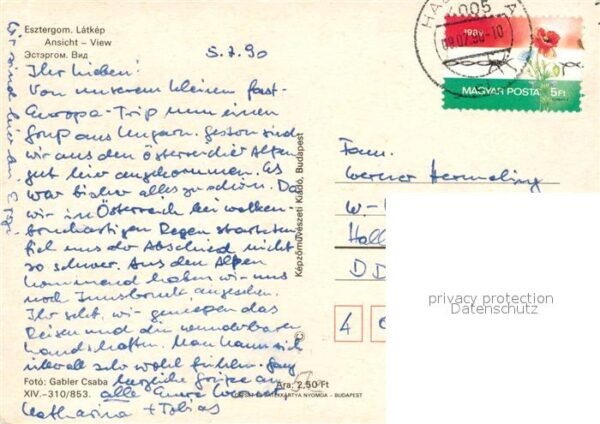 Esztergom. Látkép
Ansicht - View
Эстэргом. Вид
5.7.90
Ihr Lieben!
Von unserem kleinen fast-
Europa-Trip nun einen
Gruß aus Ungarn. Gestern sind
wir aus den Österreicher Alpen
gut hier angekommen. Es
war bisher alles zu schön. Da
wir in Österreich bei wolken-
bruchartigen Regen starteten
fiel uns der Abschied nicht
so schwer. Aus den Alpen
kommend haben wir uns
noch Innsbruck angesehen.
Ihr seht, wir genießen das
Reisen und die wunderbaren
Landschaften. Man kann sich
überall sehr wohl fühlen. Ganz
herzliche Grüße an
alle Eure
Katharina + Tobias
Wir sind hier in
Fotó: Gabler Csaba
XIV.-310/853.
Képzőművészeti Kiadó, Budapest
Ára: 2,50 Ft
KÁRTYA NYOMDA - BUDAPEST
4005
09.07.90-10
1989
MAGYAR POSTA 5Ft
Fam.
Werner Hermeling
W-
Hall
DD
4
privacy protection
Datenschutz